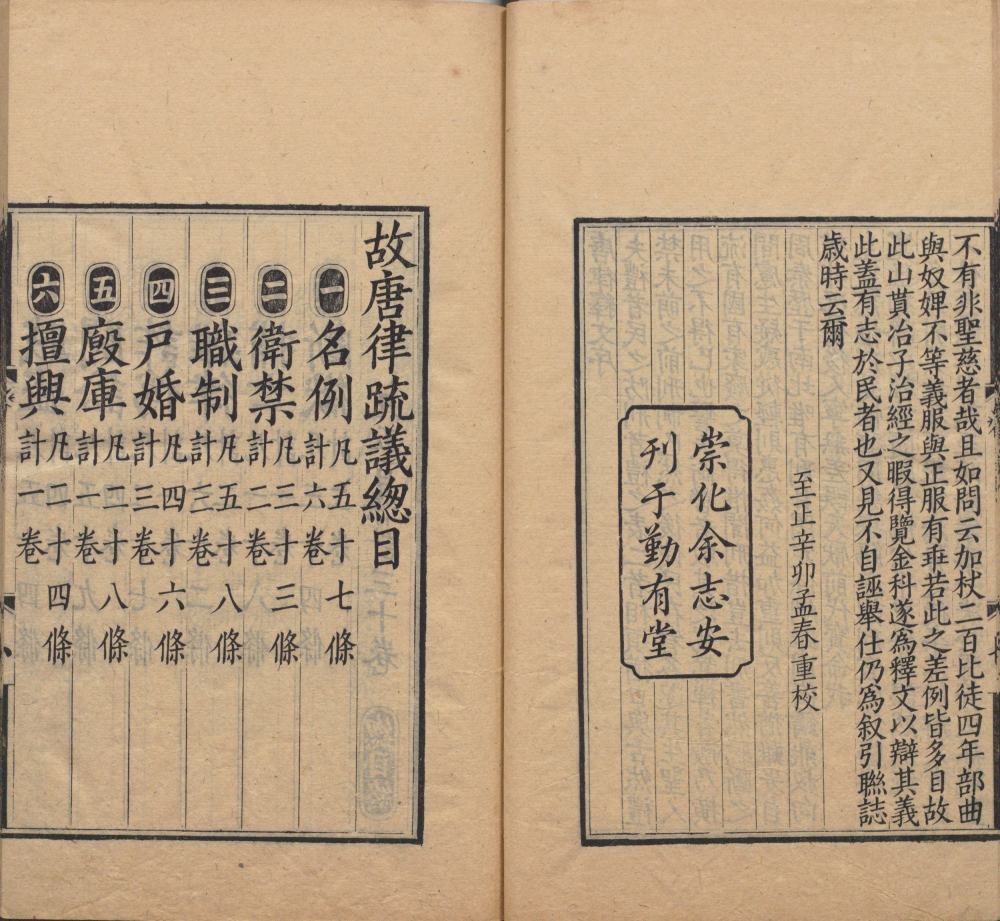 不有非聖慈者哉且如問云加杖二百比徒四年部曲
與奴婢不等義服與正服有乖若此之差例皆多目故
此山貰冶子治經之暇得覽金科遂為釋文以辯其義
此蓋有志於民者也又見不自誣舉仕仍為叙引聯誌
歲時云爾
至正辛卯孟春重校
崇化余志安
刊于勤有堂
故唐律疏議總目
一 名例 凡五十七條 計六卷
二 衛禁 凡三十三條 計二卷
三 職制 凡五十八條 計三卷
四 戶婚 凡四十六條 計三卷
五 廄庫 凡二十八條 計一卷
六 擅興 凡二十四條 計一卷